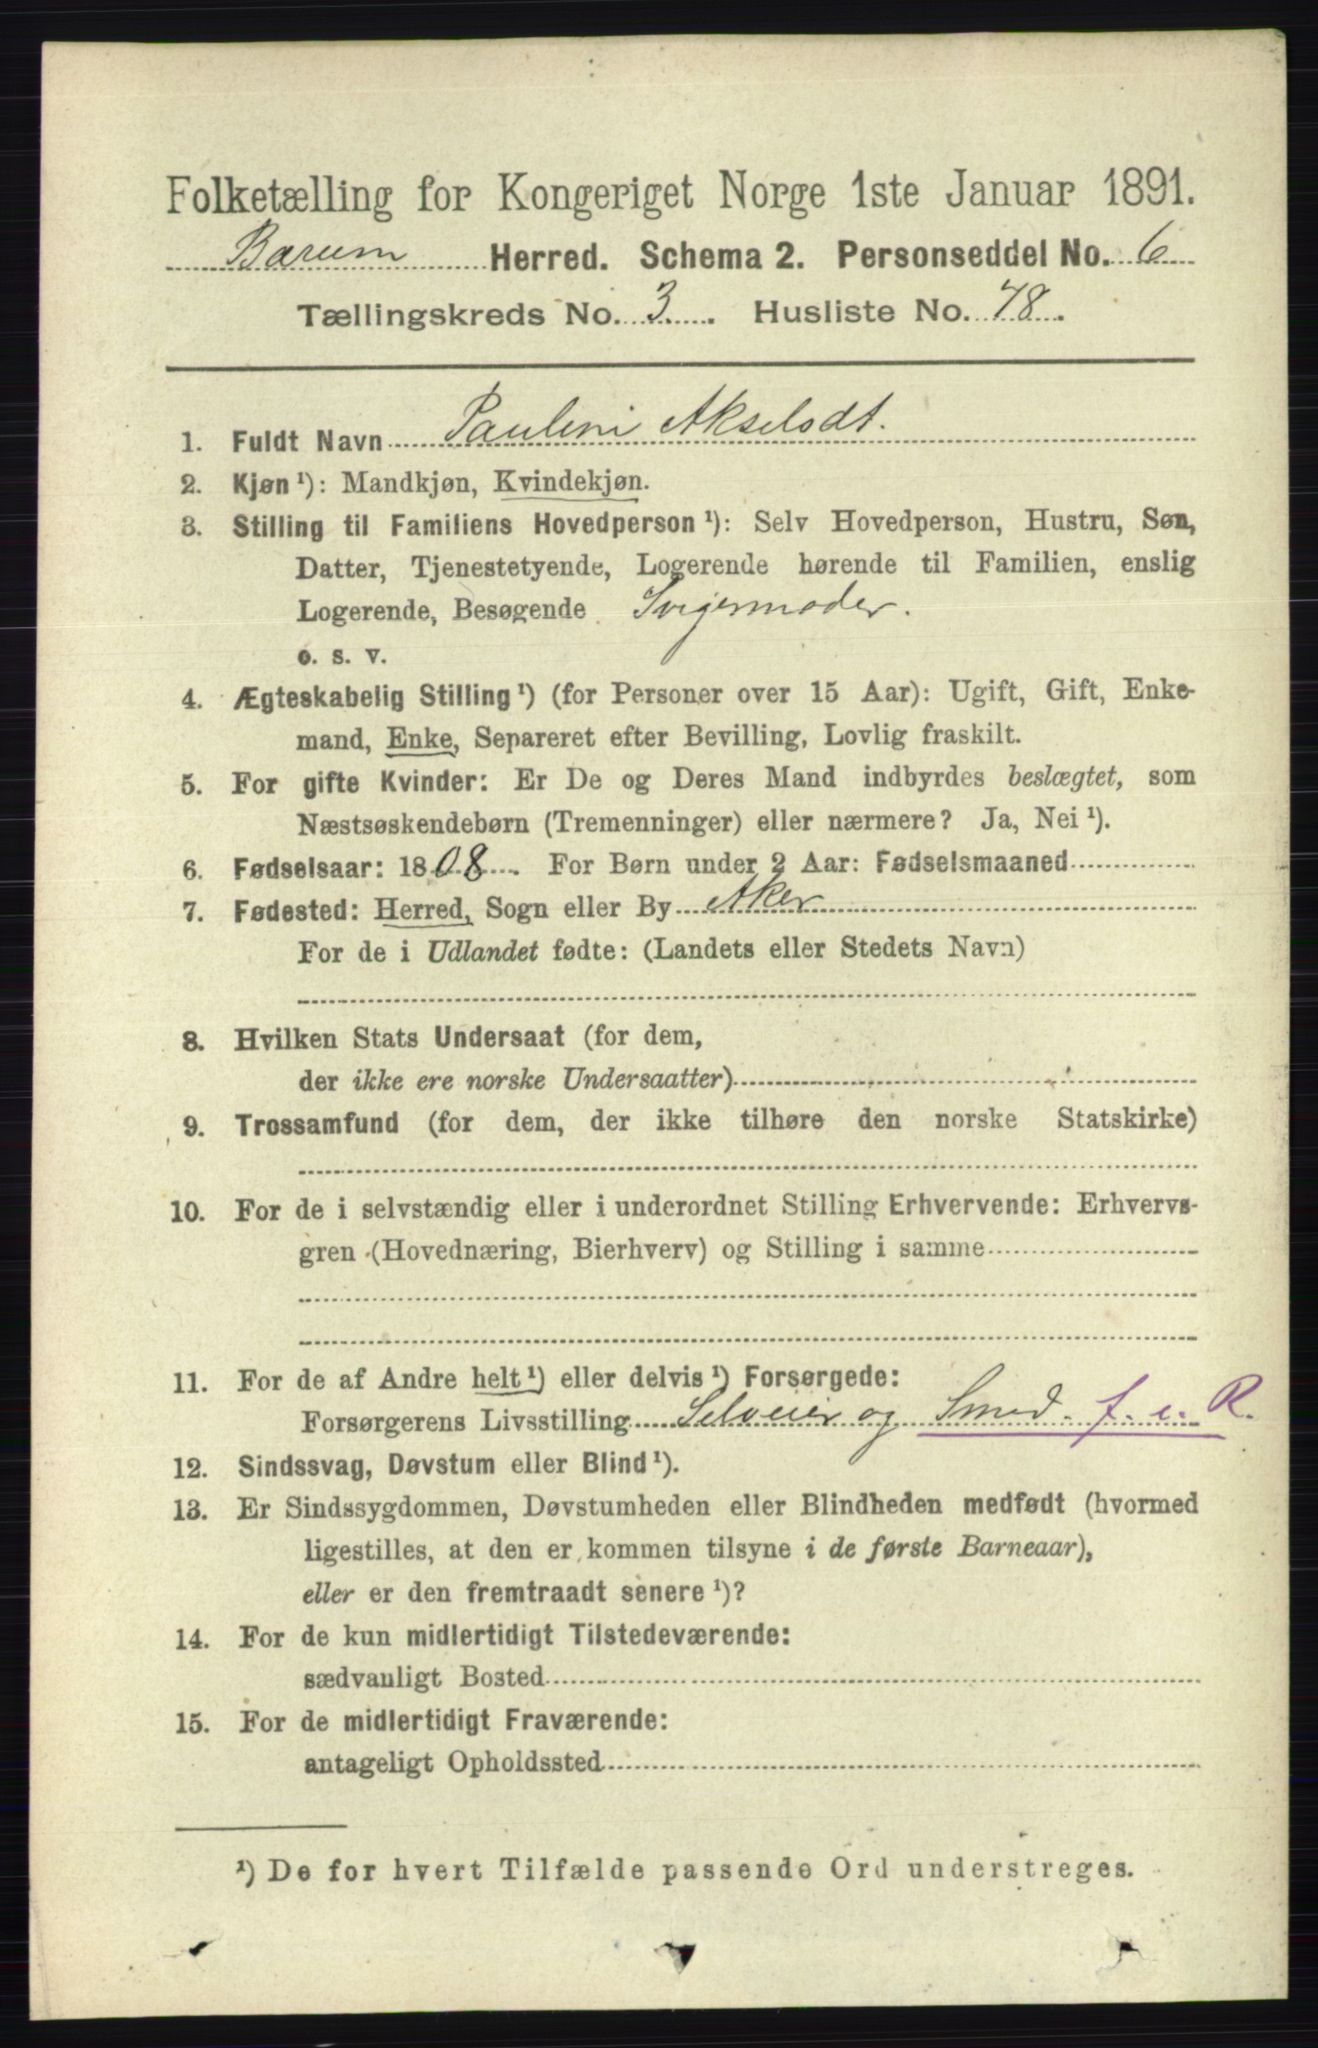 Folketælling for Kongeriget Norge 1ste Januar 1891.
Bærum Herred. Schema 2. Personseddel No. 6
Tællingskreds No. 3. Husliste No. 78.
1. Fuldt Navn Paulini Akselsdt.
2. Kjøn ¹): Mandkjøn, Kvindekjøn.
3. Stilling til Familiens Hovedperson ¹): Selv Hovedperson, Hustru, Søn,
Datter, Tjenestetyende, Logerende hørende til Familien, enslig
Logerende, Besøgende Svigermoder.
o. s. v.
4. Ægteskabelig Stilling ¹) (for Personer over 15 Aar): Ugift, Gift, Enke-
mand, Enke, Separeret efter Bevilling, Lovlig fraskilt.
5. For gifte Kvinder: Er De og Deres Mand indbyrdes beslægtet, som
Næstsøskendebørn (Tremenninger) eller nærmere? Ja, Nei ¹).
6. Fødselsaar: 1808. For Børn under 2 Aar: Fødselsmaaned
7. Fødested: Herred, Sogn eller By Aker
For de i Udlandet fødte: (Landets eller Stedets Navn)
8. Hvilken Stats Undersaat (for dem,
der ikke ere norske Undersaatter)
9. Trossamfund (for dem, der ikke tilhøre den norske Statskirke)
10. For de i selvstændig eller i underordnet Stilling Erhvervende: Erhvervs-
gren (Hovednæring, Bierhverv) og Stilling i samme
11. For de af Andre helt ¹) eller delvis ¹) Forsørgede:
Forsørgerens Livsstilling Selveier og Smed. f. e. R.
12. Sindssvag, Døvstum eller Blind ¹).
13. Er Sindssygdommen, Døvstumheden eller Blindheden medfødt (hvormed
ligestilles, at den er kommen tilsyne i de første Barneaar),
eller er den fremtraadt senere ¹)?
14. For de kun midlertidigt Tilstedeværende:
sædvanligt Bosted
15. For de midlertidigt Fraværende:
antageligt Opholdssted
¹) De for hvert Tilfælde passende Ord understreges.